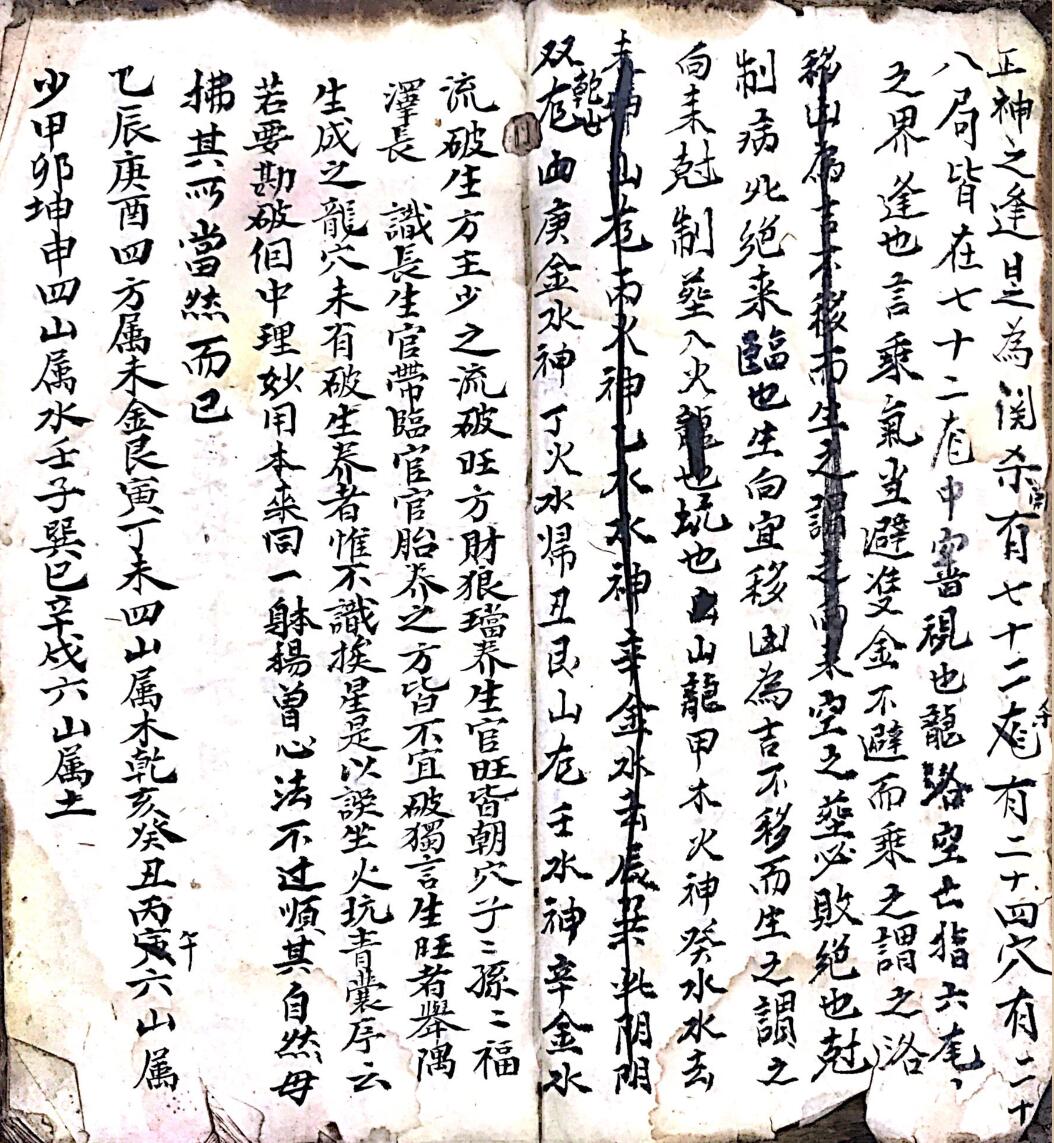 正神之逢是為関杀有七十二龙有二十四穴有二十
八局皆在七十二龙中審視也龍路空亡指六毫、
之界逢也言乘氣当避隻金不避而乘之謂之洛
移山為吉不移而生之謂之而未空之塟必敗絕也尅
制病此絕来臨也生向宜移凶為吉不移而生之謂之
向来尅制塟入火龍也坑也山龍甲木火神癸水水去
未神山龙丙火神乙水水神辛金水去辰巽此阴阴
双龙乾山血庚金水神丁火水帰丑艮山龙壬水神辛金水
流破生方主少之流破旺方財狼璫养生官旺皆朝穴子二孫二福
澤長　識長生官帶臨官官胎养之方皆不宜破獨言生旺者舉隅
生成之龍穴未有破生养者惟不識挨星是以誤坐火坑青囊序云
若要勘破個中理妙用本来同一躰楊曾心法不过順其自然毋
拂其所當然而已
乙辰庚酉四方属未金艮寅丁未四山属木乾亥癸丑丙寅午六山属
少甲卯坤申四山属水壬子巽巳辛戌六山属土